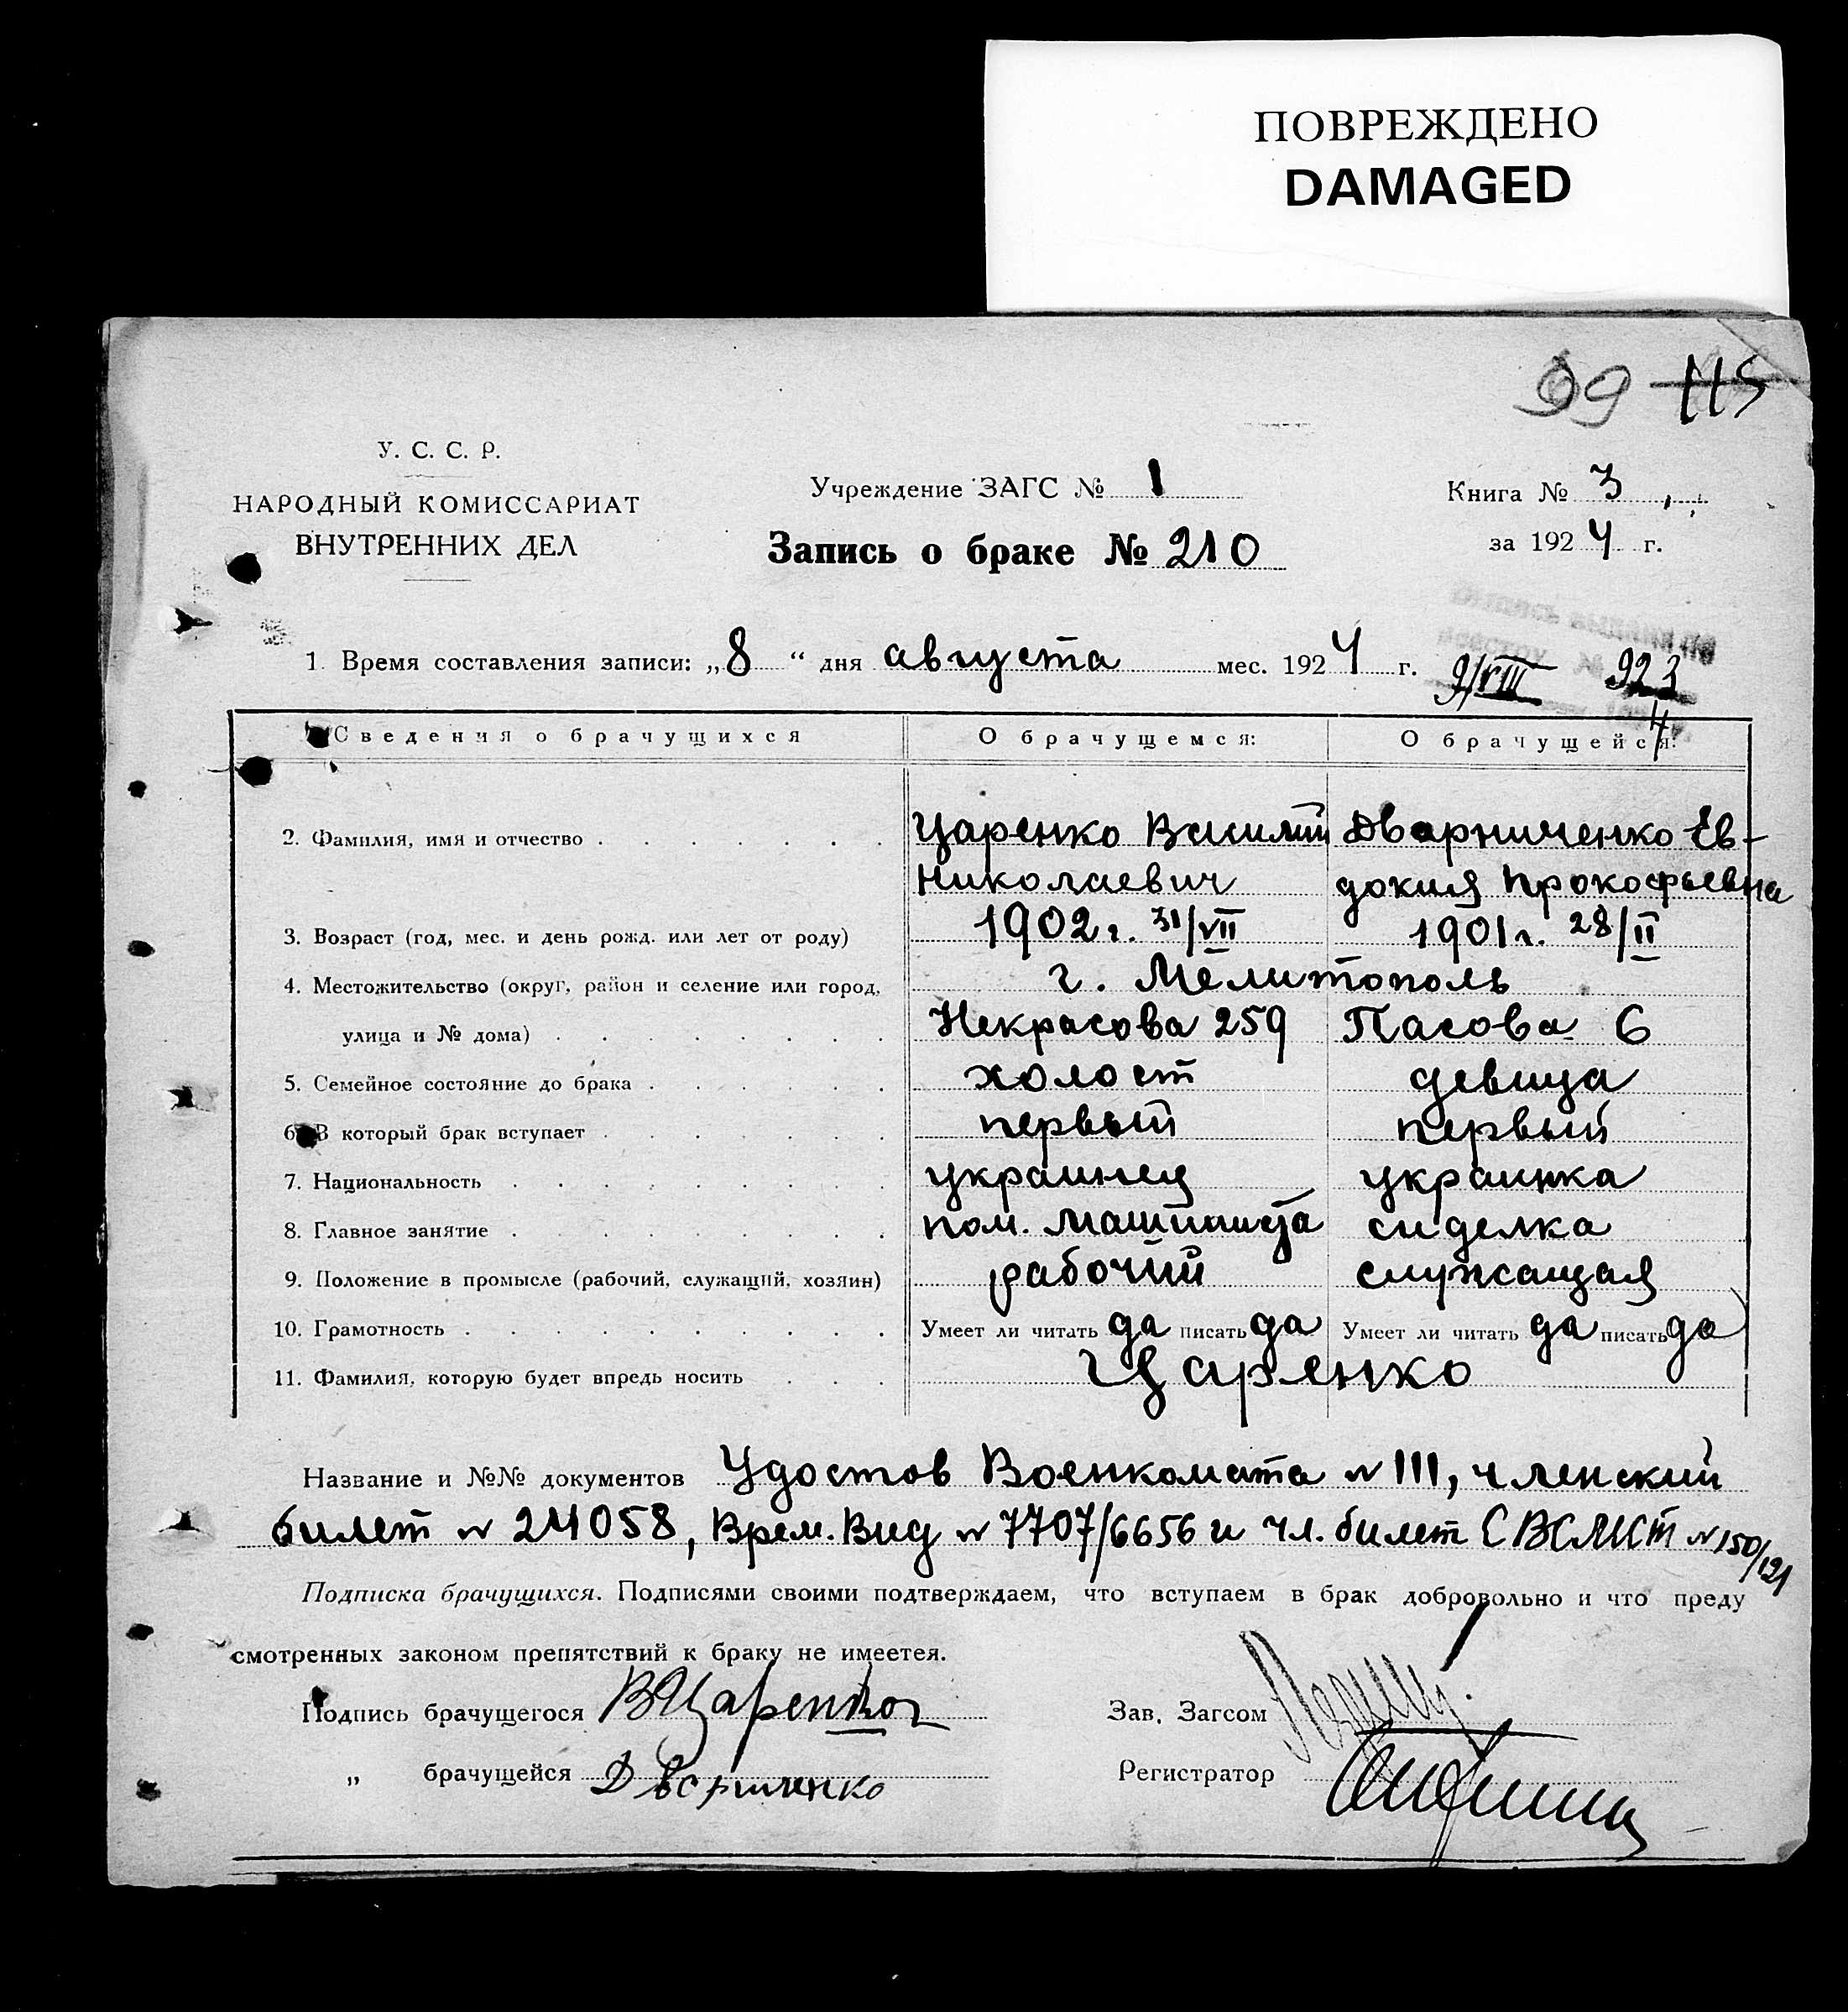 ПОВРЕЖДЕНО
DAMAGED
99 115
У. С. С. Р.
НАРОДНЫЙ КОМИССАРИАТ
ВНУТРЕННИХ ДЕЛ
Учреждение ЗАГС № 1
Запись о браке № 210
Книга № 3
за 1924 г.
1. Время составления записи: „8“ дня августа мес. 1924 г.
9/VIII 923
4
Сведения о брачущихся О брачущемся: О брачущейся:
2. Фамилия, имя и отчество Царенко Василий Дворниченко Ев-
Николаевич докия Прокофьевна
3. Возраст (год, мес. и день рожд. или лет от роду) 1902 г. 31/VII 1901 г. 28/II
4. Местожительство (округ, район и селение или город, г. Мелитополь
улица и № дома) Некрасова 259 Пасова 6
5. Семейное состояние до брака холост девица
6. В который брак вступает первый первый
7. Национальность украинец украинка
8. Главное занятие пом. машиниста сиделка
9. Положение в промысле (рабочий, служащий, хозяин) рабочий служащая
10. Грамотность Умеет ли читать да писать да Умеет ли читать да писать да
11. Фамилия, которую будет впредь носить Царенко
Название и №№ документов Удостов Военкомата № 111, членский
билет № 24058, Врем. Вид № 7707/6656 и чл. билет № 150/121
Подписка брачущихся. Подписями своими подтверждаем, что вступаем в брак добровольно и что преду
смотренных законом препятствий к браку не имеетея.
Подпись брачущегося ВЦаренко
Зав. Загсом
„ брачущейся Дворниченко
Регистратор